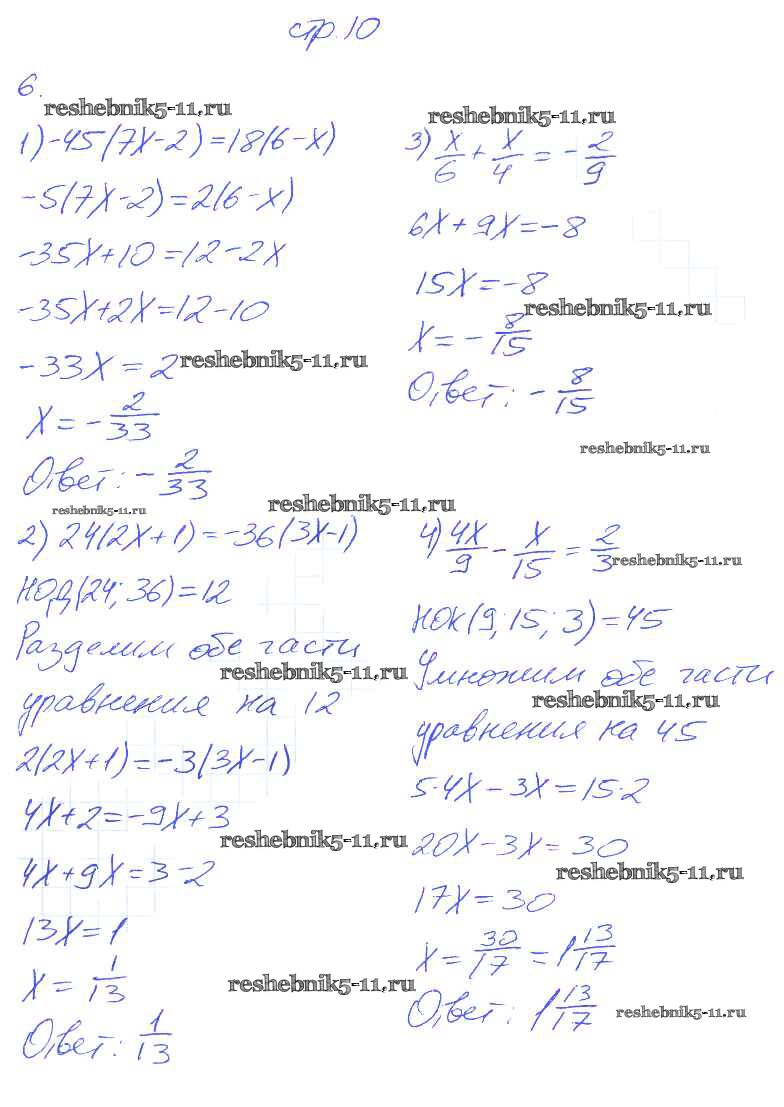 стр. 10
6.
reshebnik5-11.ru
1) -45(7x-2)=18(6-x)
-5(7x-2)=2(6-x)
-35x+10=12-2x
-35x+2x=12-10
-33x=2 reshebnik5-11.ru
x=-2/33
Ответ: -2/33
reshebnik5-11.ru
reshebnik5-11.ru
2) 24(2x+1)=-36(3x-1)
НОД(24; 36)=12
Разделим обе части
reshebnik5-11.ru
уравнения на 12
2(2x+1)=-3(3x-1)
4x+2=-9x+3
reshebnik5-11.ru
4x+9x=3-2
13x=1
x=1/13
reshebnik5-11.ru
Ответ: 1/13
reshebnik5-11.ru
3) x/6+x/4=-2/9
6x+9x=-8
15x=-8
reshebnik5-11.ru
x=-8/15
Ответ: -8/15
reshebnik5-11.ru
4) 4x/9-x/15=2/3 reshebnik5-11.ru
НОК(9; 15; 3)=45
Умножим обе части
reshebnik5-11.ru
уравнения на 45
5·4x-3x=15·2
20x-3x=30
reshebnik5-11.ru
17x=30
x=30/17=1 13/17
Ответ: 1 13/17 reshebnik5-11.ru